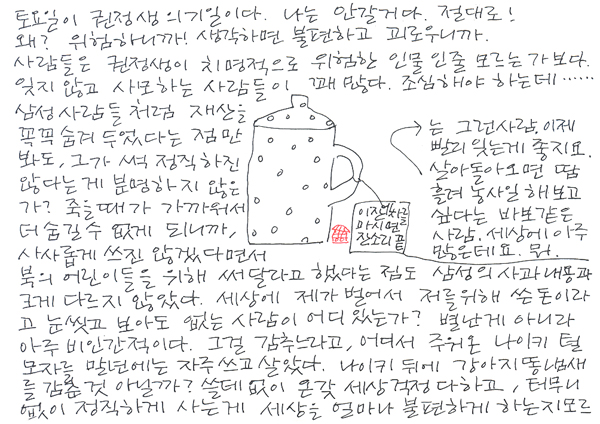 토요일이 권정생의 기일이다. 나는 안갈거다. 절대로!
왜? 위험하니까! 생각하면 불편하고 괴로우니까.
사람들은 권정생이 치명적으로 위험한 인물인줄 모르는가보다.
잊지않고 사모하는 사람들이 꽤 많다. 조심해야 하는데……
삼성사람들처럼 재산을
꼭꼭 숨겨두었다는 점만
봐도, 그가 썩 정직하진
않다는게 분명하지 않은
가? 죽을때가 가까워서
더 숨길수 없게 되니까,
사사롭게 쓰진 않겠다면서
북의 어린이들을 위해 써달라고 했다는 점도 삼성의 사과내용과
크게 다르지 않았다. 세상에 제가 벌어서 저를위해 쓴 돈이라
고 눈씻고 보아도 없는 사람이 어디있는가? 별난게 아니라
아주 비인간적이다. 그걸 감추느라고, 어디서 주워온 나이키 털
모자를 말년에는 자주쓰고 살았다. 나이키 뒤에 강아지똥냄새
를 감춘 것 아닐까? 쓸데없이 온갖 세상걱정 다하고, 터무니
없이 정직하게 사는게 세상을 얼마나 불편하게 하는지모르
는 그런사람, 이제
빨리 잊는게 좋지요.
살아돌아오면 땀
흘려 농사일 해보고
싶다는 바보같은
사람. 세상에 아주
많은데요. 뭐.
이잔에 차를
마시면
잔소리 끝